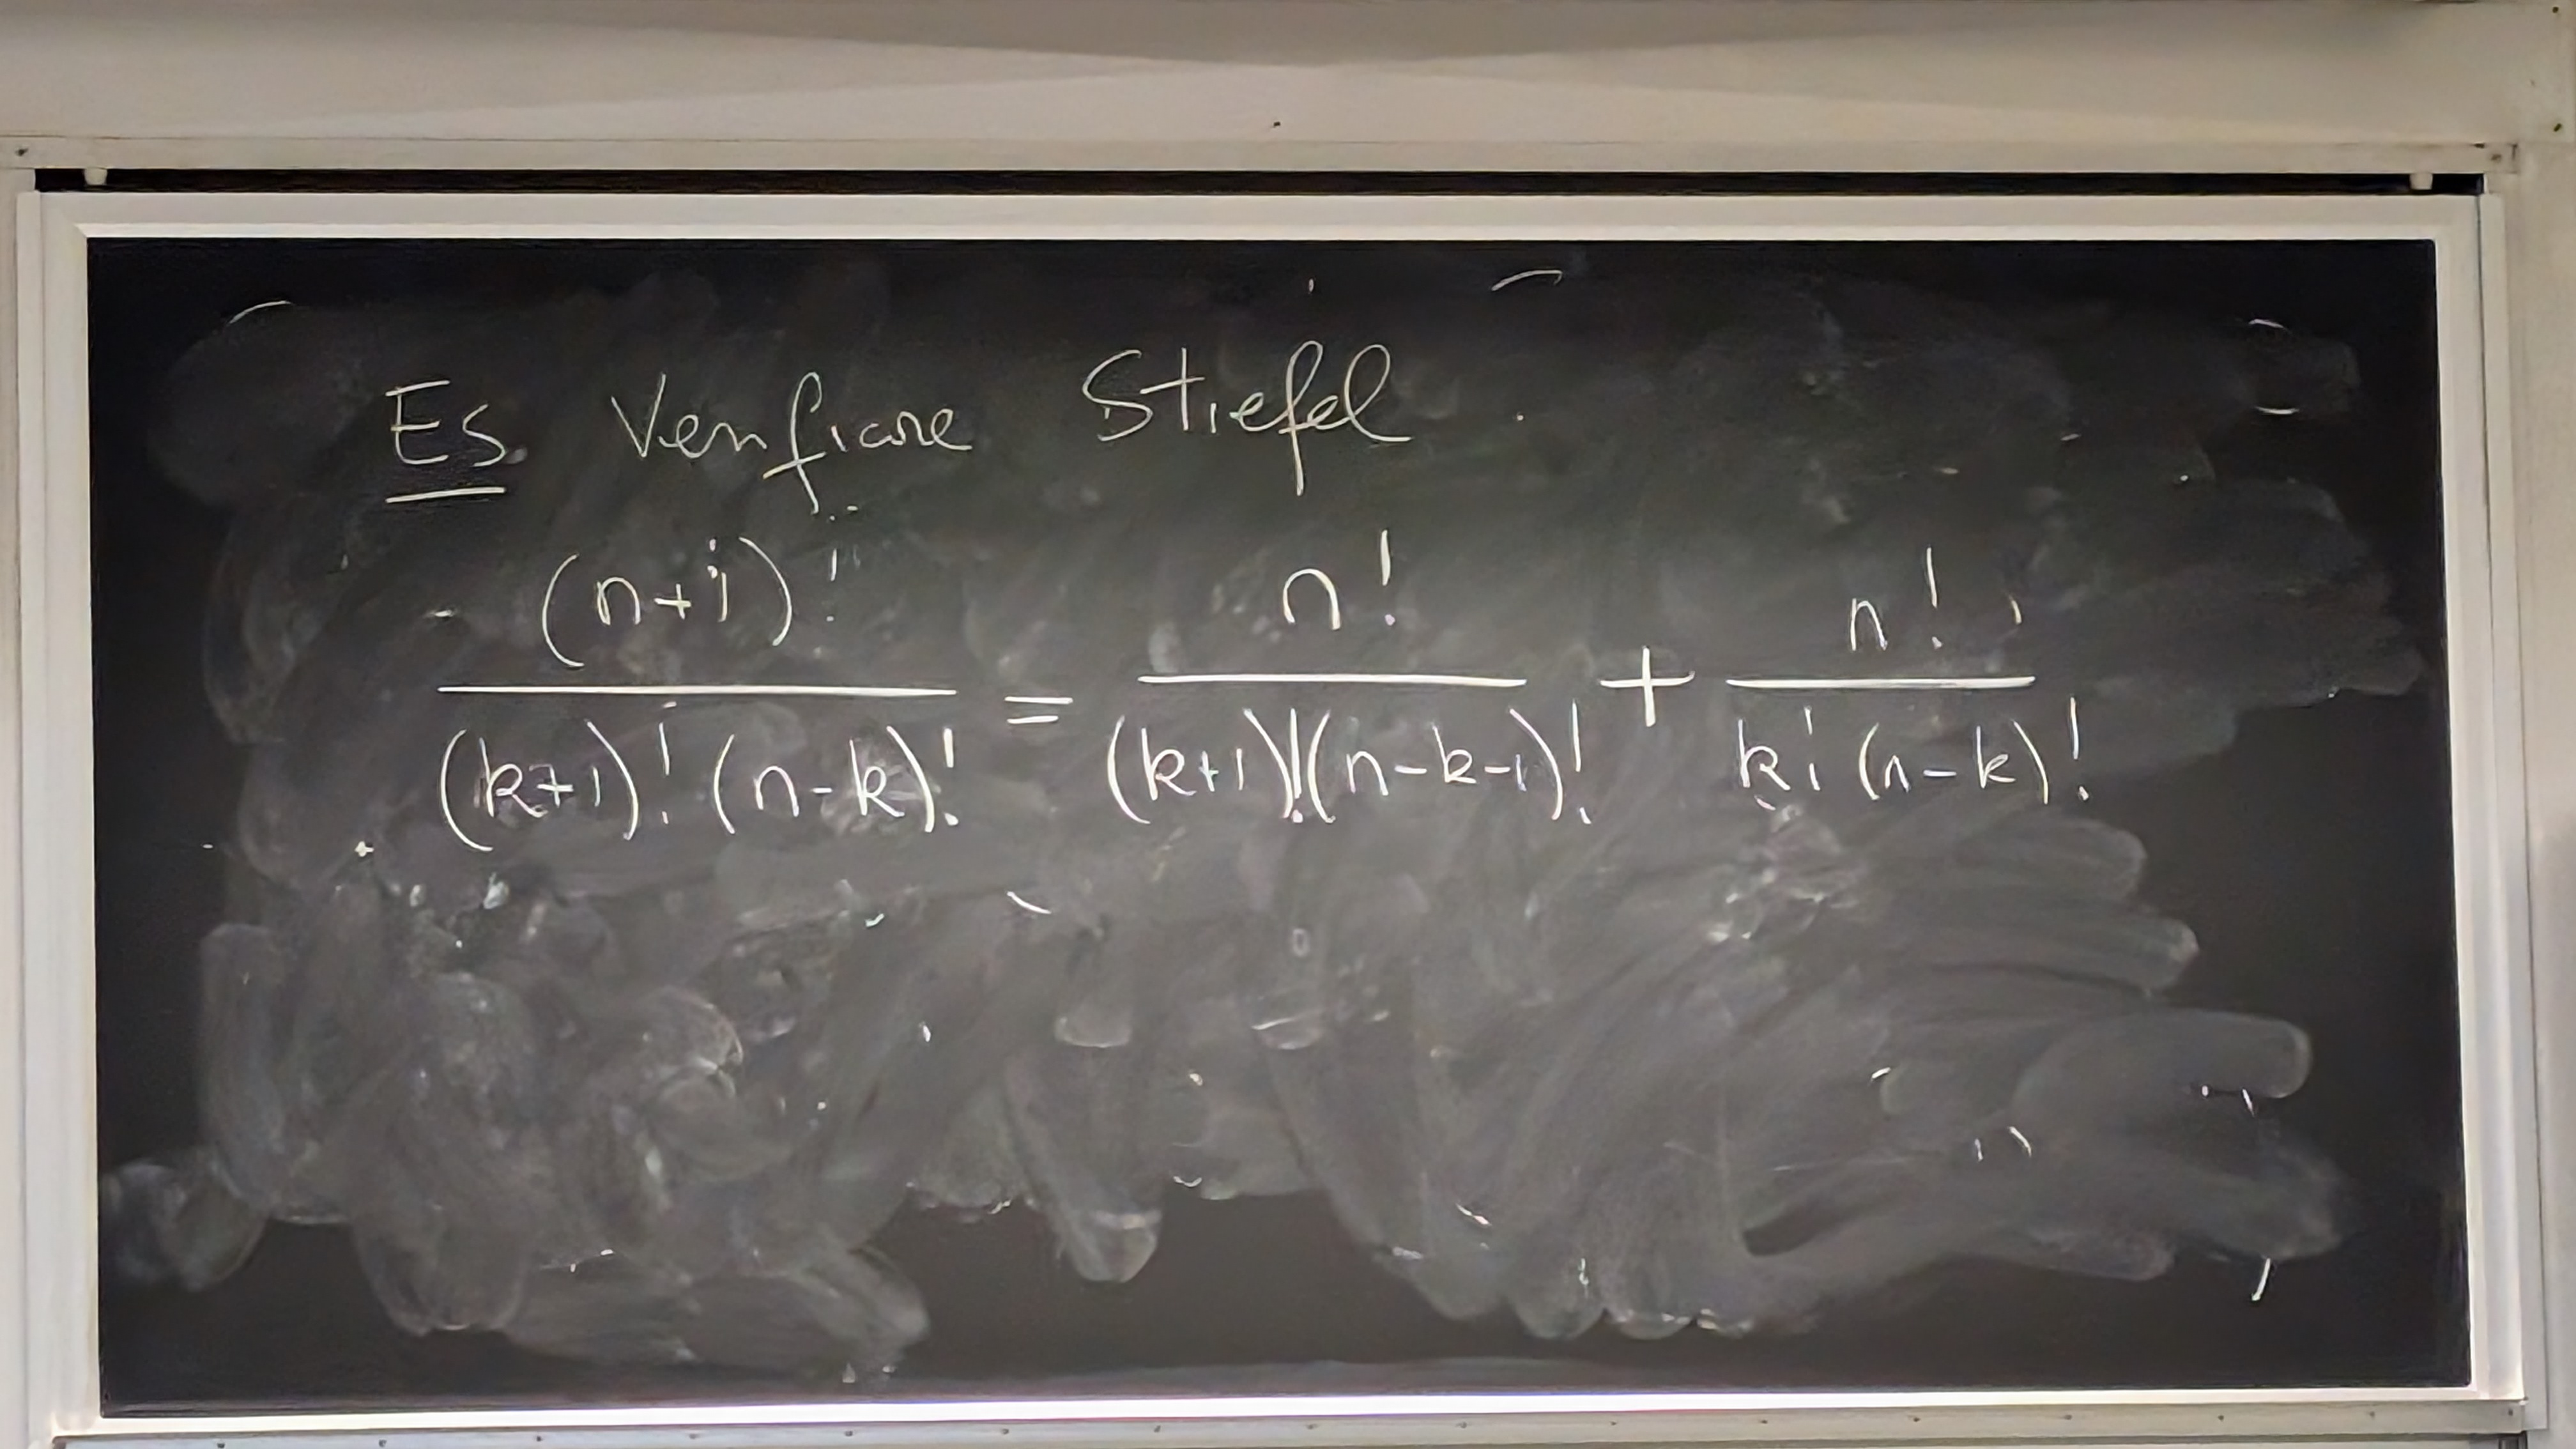 Es. Verificare Stiefel
(n+1)! / (k+1)! (n-k)! = n! / (k+1)!(n-k-1)! + n! / k! (n-k)!